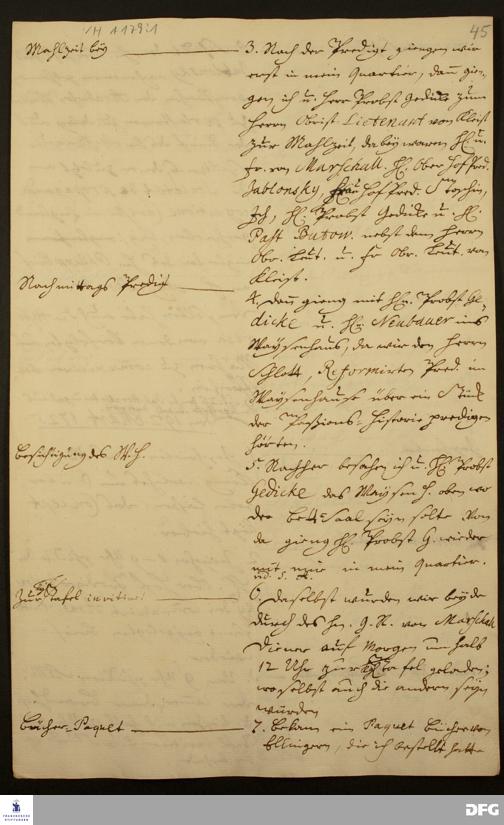 VH 1179:1
45
Mahlzeit bey
3. Nach der Predigt giengen wir
erst in mein Quartier, dann gien-
gen ich u. Herr Probst Gedicke zum
Herrn Obrist Lieutenant von Kleist
zur Mahlzeit, dabey waren H. u.
Fr. von Marschall, H. Ober Hof Pred.
Jablonsky, Hof Pred.
Ich, H. Probst Gedicke u. H.
Past Butow. nebst dem Herrn
Obr. Leut. u. Fr Obr. Leut. von
Kleist.
Nachmittags Predigt
4. Dann gieng mit Hn. Probst Ge-
dicke u. Hn. Neubauer ins
Waysenhaus, da wir den Herrn
Schlott, Reformirten Pred. im
Waysenhause über ein Stück
der Passions-Historie predigen
hörten.
Besichtigung des W. H.
5. Nachher besahen ich u. H. Probst
Gedicke das Waysen H. oben wo
der Bet-Saal seyn solte. Von
da gieng H. Probst G. wieder
mit mir in mein Quartier.
Zur Tafel invitiret
6. Daselbst wurden wir beyde
durch des Hn. G. R. von Marschall
Diener auf Morgen um halb
12 Uhr zur Tafel geladen;
woselbst auch die andern seyn
würden
Bücher-Paquet
7. Bekam ein Paquet Bücher von
Ellingern, die ich bestellt hatte
FRANCKESCHE STIFTUNGEN
DFG